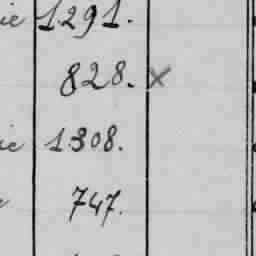 ie 1291.
828. x
ie 1308.
747.